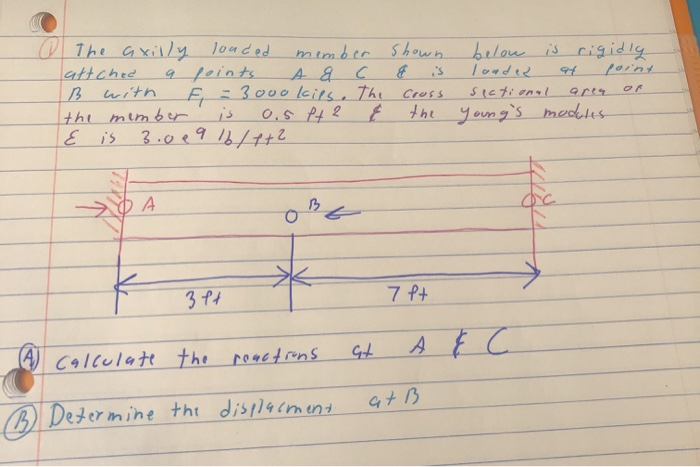 ① The axilly loaded member shown below is rigidly
attched a points A & C & is loaded at point
B with F₁ = 3000 kips. The cross sectional area of
the member is 0.5 ft2 & the young's modules
E is 3.0e9 lb/ft2
A
B
C
3 ft
7 ft
Ⓐ Calculate the reactions at A & C
Ⓑ Determine the displacment at B